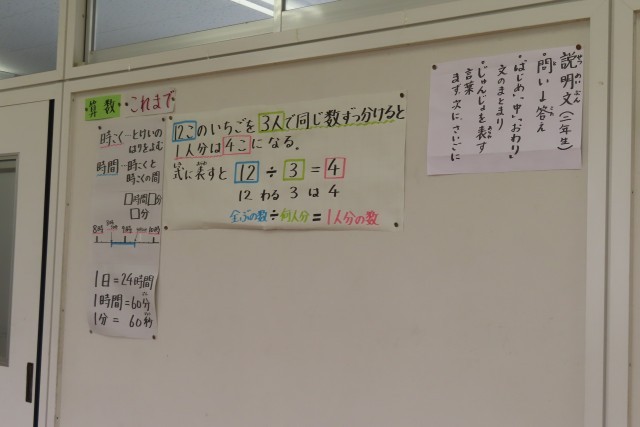 算数 これまで
時こく−とけいの
はりをよむ
時間−時こくと
時こくの間
□時間□分
□分
8時 9時 10時
1日=24時間
1時間=60分
1分= 60秒
12このいちごを3人で同じ数ずつ分けると
1人分は4こになる。
式に表すと 12÷3=4
12 わる 3 は 4
全ぶの数÷何人分=1人分の数
説明文(二年生)
・問いと答え
・「はじめ」「中」「おわり」
文のまとまり
・じゅんじょを表す
言葉
まず、次に、さいごに